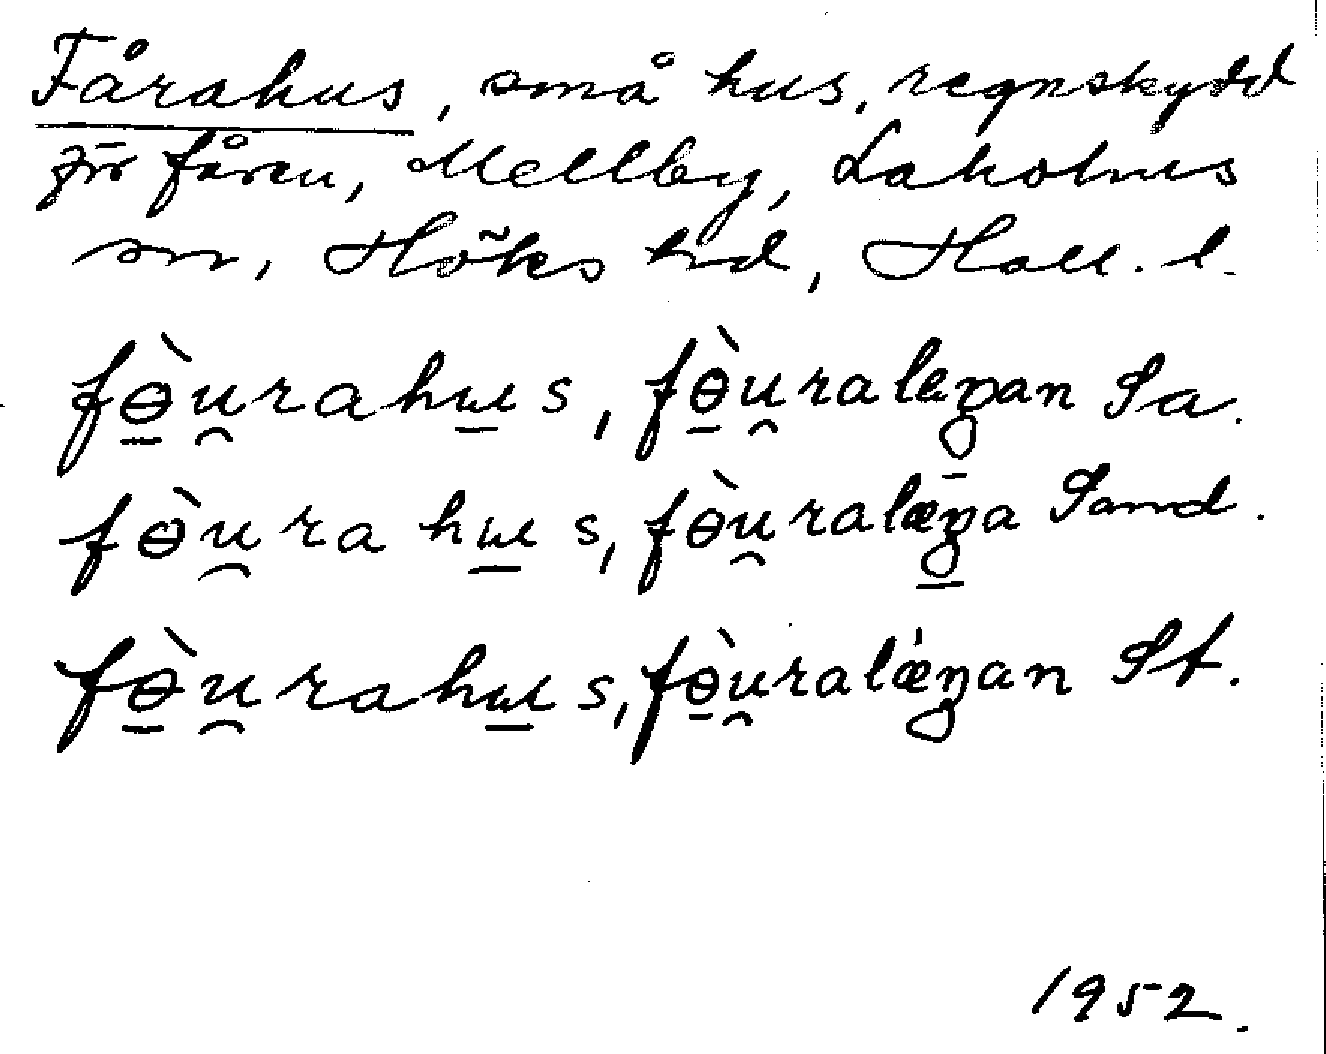 Fårahus, små hus, regnskydd
för fåren, Mellby, Laholms
sn, Höks hd, Hall. l.
fɵ̀u̯rahɯs, fɵ̀u̯raleŋan Sa.
fɵ̀u̯rahɯs, fɵ̀u̯ralæŋa Sand.
fɵ̀u̯rahɯs, fɵ̀u̯ralæŋan St.
1952.